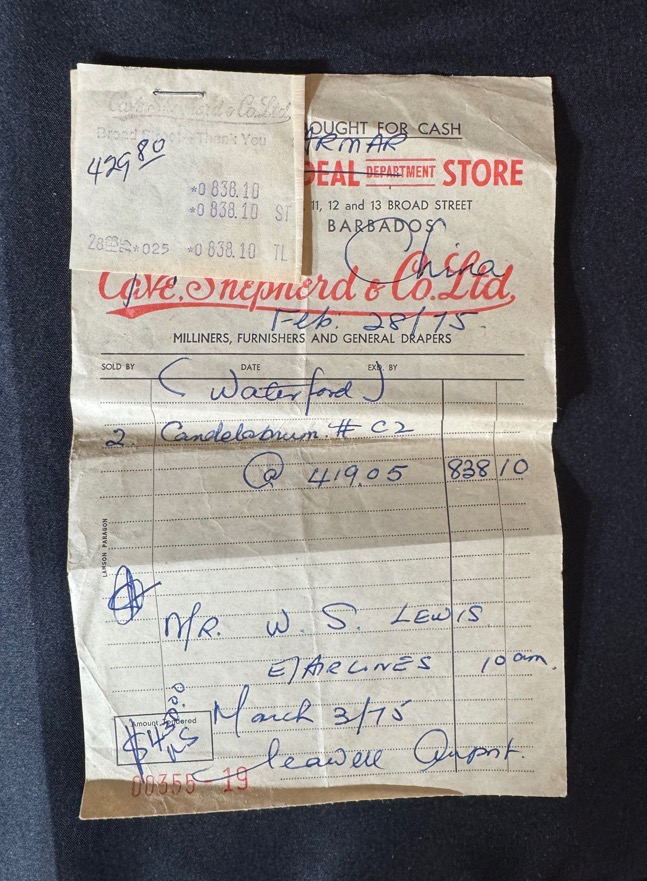 Cave Shepherd & Co. Ltd.
Broad Street Thank You
429 80
*0 838.10
*0 838.10 ST
*025 *0 838.10 TL
OUGHT FOR CASH
ARMAR
DEAL DEPARTMENT STORE
11, 12 and 13 BROAD STREET
BARBADOS
China
Cave, Shepherd & Co. Ltd,
Feb. 28/75.
MILLINERS, FURNISHERS AND GENERAL DRAPERS
SOLD BY DATE EXD. BY
(Waterford)
2. Candelabrum # C2
@ 419.05 838 10
LAMSON PARAGON
M/R. W. S. LEWIS
E/AIRLINES 10 am.
March 3/75
Amount Tendered
$430.00 US
Seawell Airport.
00355 19